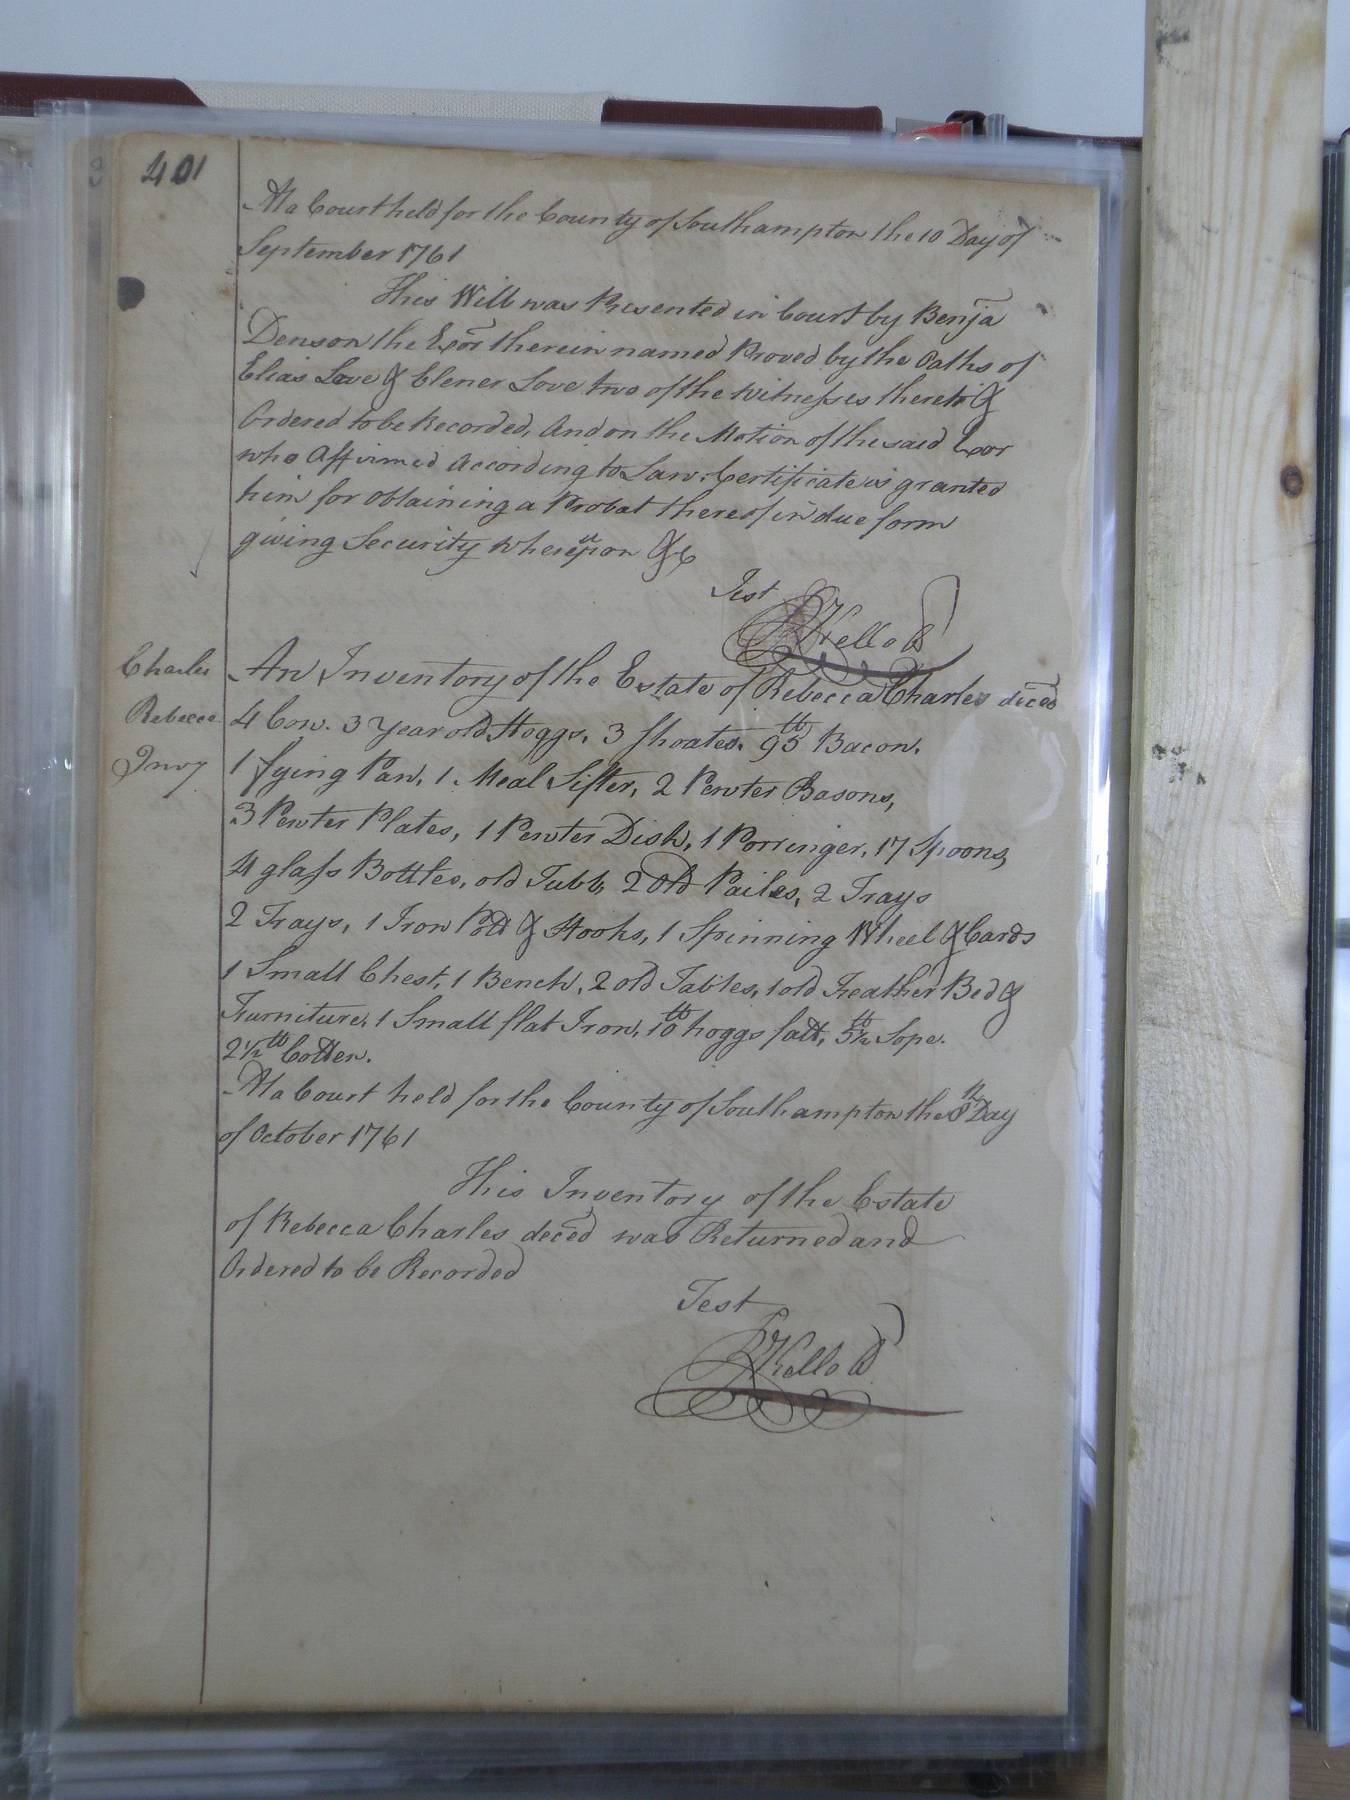 401
At a Court held for the County of Southampton the 10 Day of
September 1761
This Will was Presented in Court by Benja
Denson the Exor therein named Proved by the Oaths of
Elias Love & Elener Love two of the Witnesses thereto &
Ordered to be Recorded, And on the Motion of the said Exor
who Affirmed According to Law. Certificate is granted
him for Obtaining a Probat thereof in due form
giving Security Whereupon &c
Test
Kello
Charles
Rebecca
Invy
An Inventory of the Estate of Rebecca Charles deced
4 Cow. 3 Year old Hoggs, 3 Shoates. 95 lb Bacon.
1 fying Pan, 1 Meal Sifter, 2 Pewter Basons,
3 Pewter Plates, 1 Pewter Dish, 1 Porringer, 17 Spoons,
4 glass Bottles, old Tubb, 2 Old Pailes, 2 Trays
2 Trays, 1 Iron Pott & Hooks, 1 Spinning Wheel & Cards
1 Small Chest, 1 Bench, 2 old Tables, 1 old Feather Bed &
Furniture, 1 Small flat Iron, 10 lb hoggs fatt, 5½ lb Sope.
2½ lb Cotten.
At a Court held for the County of Southampton the 8th Day
of October 1761
This Inventory of the Estate
of Rebecca Charles deced was Returned and
Ordered to be Recorded
Test
Kello